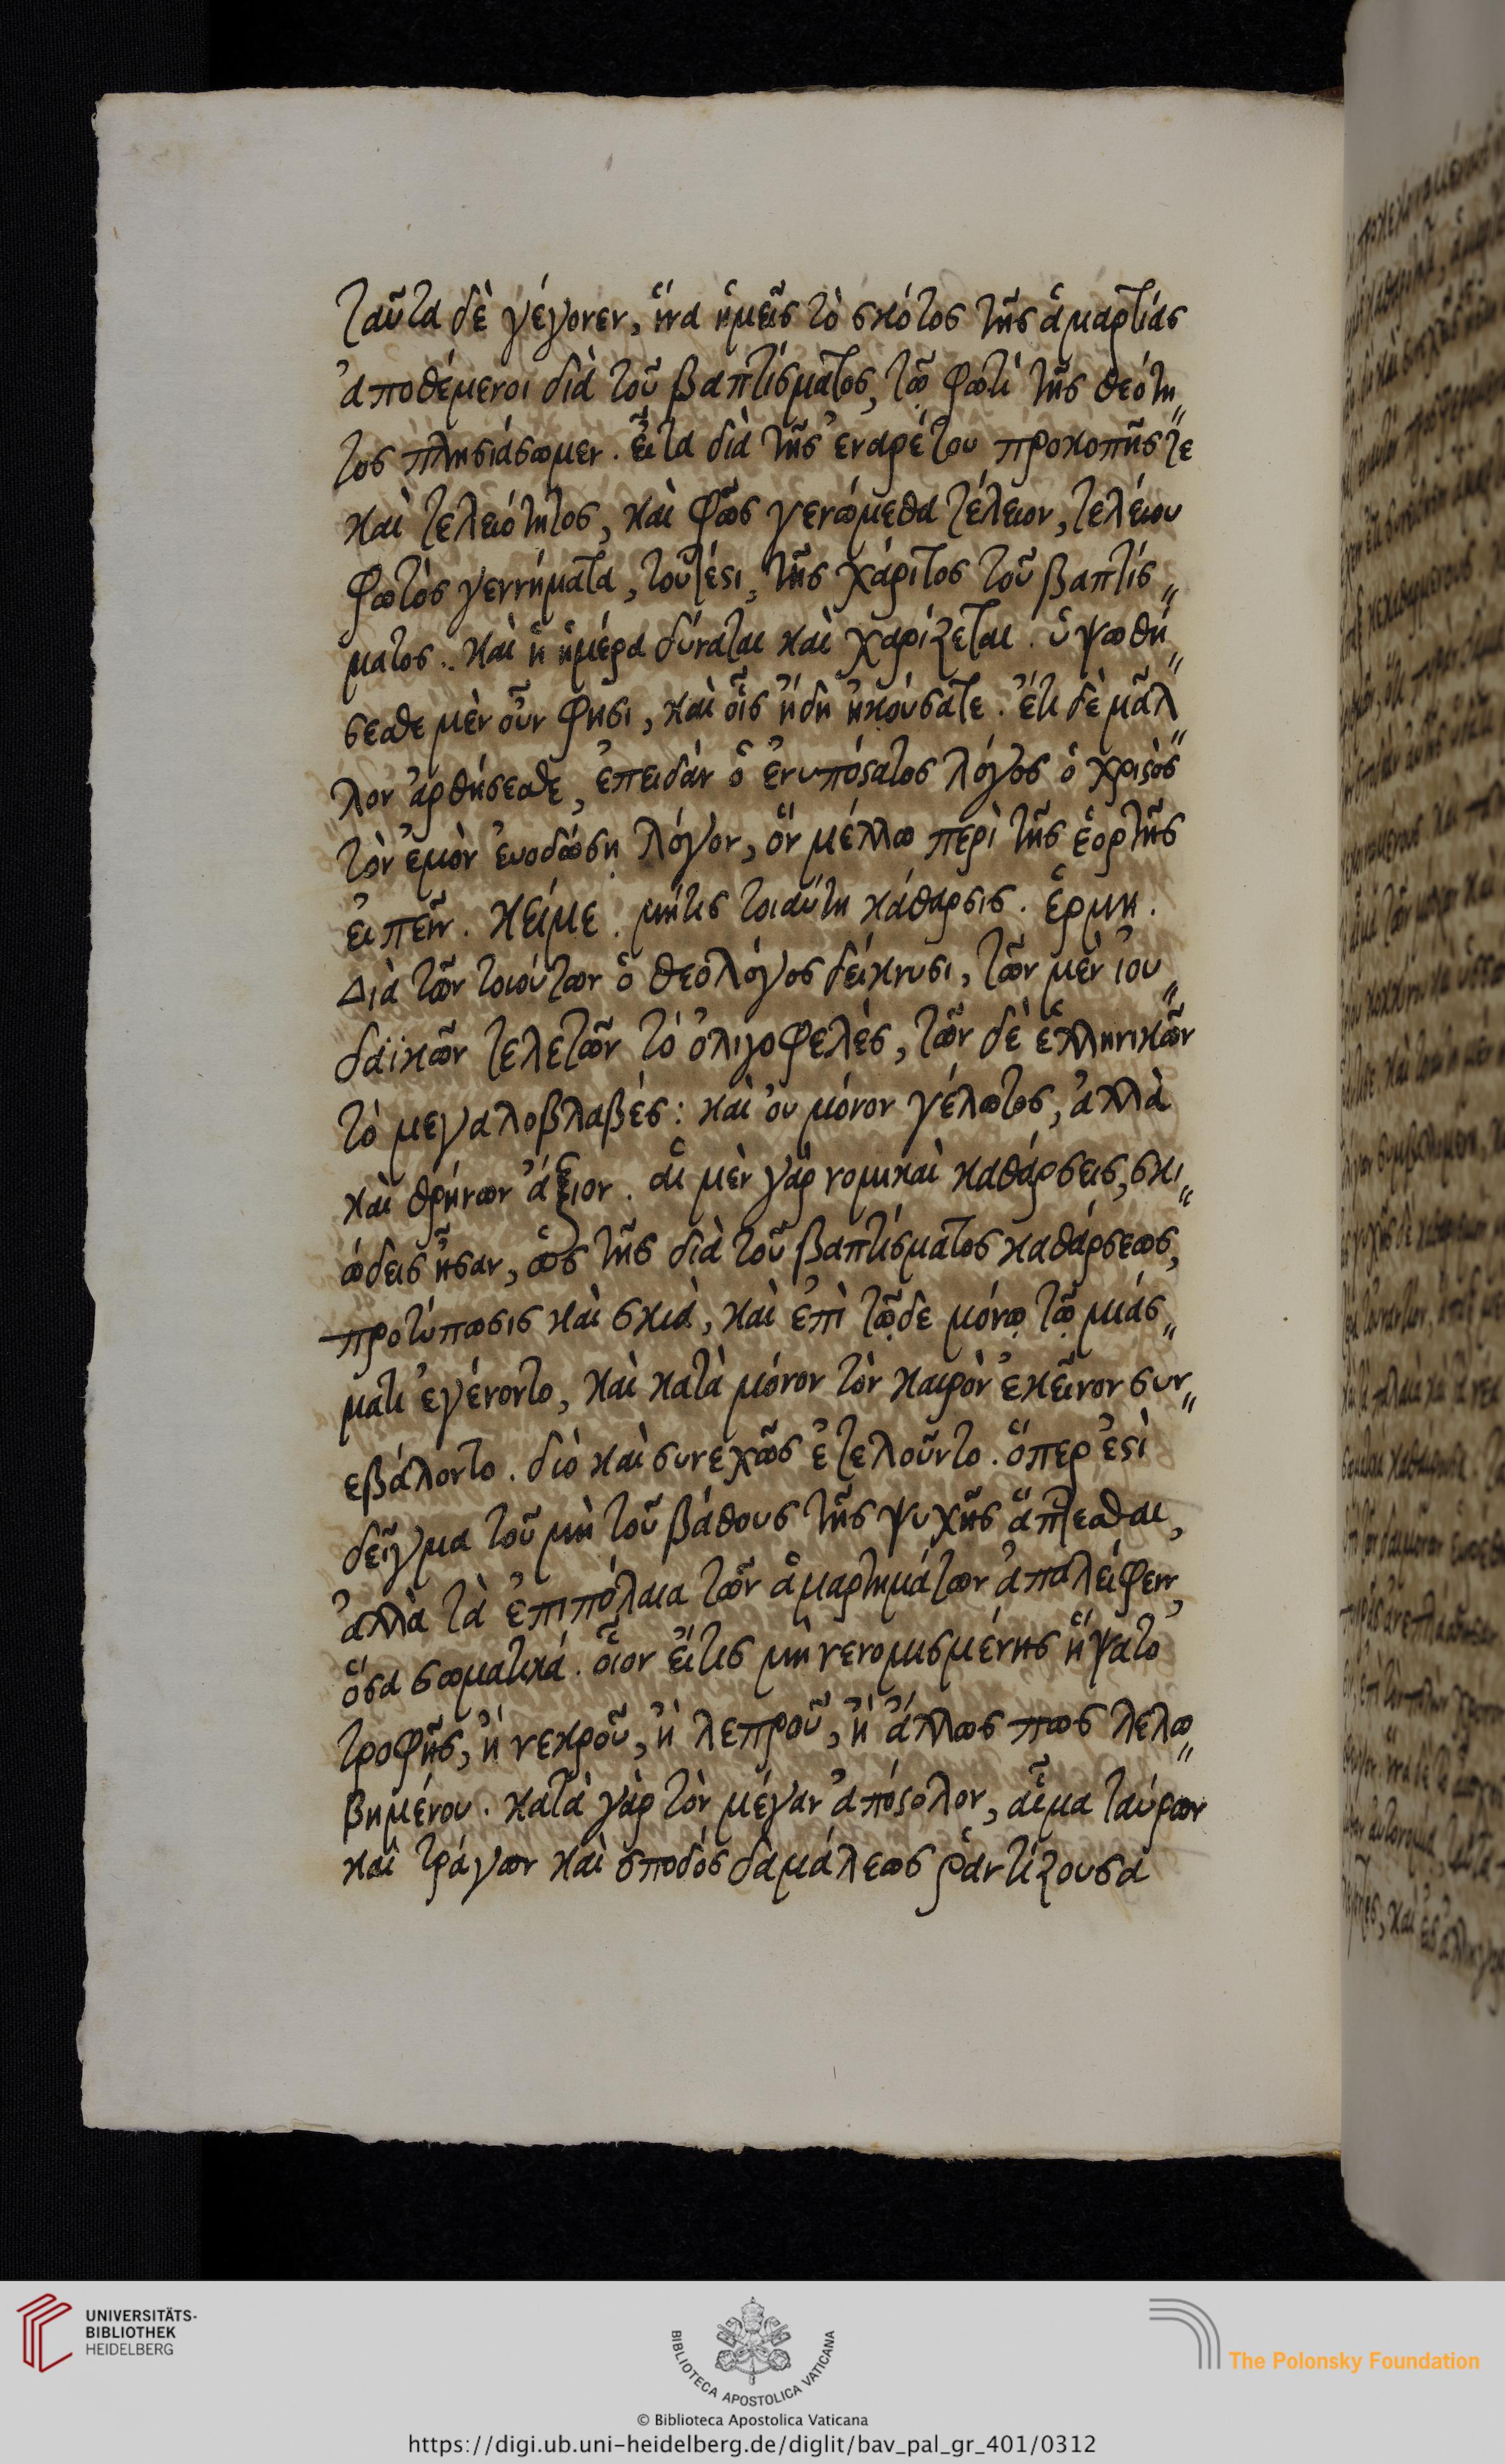 ταῦτα δὲ γέγονεν, ἵνα ἡμεῖς τὸ σκότος τῆς ἁμαρτίας
ἀποθέμενοι διὰ τοῦ βαπτίσματος, τῷ φωτὶ τῆς θεότη„
τος πλησιάσωμεν. εἶτα διὰ τῆς ἐναρέτου προκοπῆς τε
καὶ τελειότητος, καὶ φῶς γενώμεθα τέλειον, τελείου
φωτὸς γεννήματα, τοῦτέστι, τῆς χάριτος τοῦ βαπτίσ„
ματος.. καὶ ἡ ἡμέρα δύναται καὶ χαρίζεται. ὑψωθή„
σεσθε μὲν οὖν φησι, καὶ οἷς ἤδη ἠκούσατε. ἔτι δὲ μᾶλ„
λον ἀρθήσεσθε, ἐπειδὰν ὁ ἐνυπόστατος λόγος ὁ χριστὸς
τὸν ἐμὸν ἐυοδώσῃ λόγον, ὃν μέλλω περὶ τῆς ἑορτῆς
ἐιπεῖν. κείμε. μήτις τοιαύτη κάθαρσις. ἑρμη.
Διὰ τῶν τοιούτων ὁ θεολόγος δείκνυσι, τῶν μὲν ἰου„
δαϊκῶν τελετῶν τὸ ὀλιγοφελὲς, τῶν δὲ ἑλληνικῶν
τὸ μεγαλοβλαβές: καὶ ὀυ μόνον γέλωτος, ἀλλὰ
καὶ θρήνων ἄξιον. αἱ μὲν γὰρ νομικαὶ καθάρσεις, σκι„
ώδεις ἦσαν, ὡς τῆς διὰ τοῦ βαπτίσματος καθάρσεως,
προτύπωσις καὶ σκιὰ, καὶ ἐπὶ τῷδε μόνῳ τῷ μιάσ„
ματι ἐγένοντο, καὶ κατὰ μόνον τὸν καιρὸν ἐκεῖνον συν„
εβάλοντο. διὸ καὶ συνεχῶς ἐτελοῦντο. ὅπερ ἐστὶ
δεῖγμα τοῦ μὴ τοῦ βάθους τῆς ψυχῆς ἅπτεσθαι,
ἀλλὰ τὰ ἐπιπόλαια τῶν ἁμαρτημάτων ἀπαλείφειν,
ὅσα σωματικά. οἷον εἴτις μὴ νενομισμένης ἥψατο
τροφῆς, ἢ νεκροῦ, ἢ λεπροῦ, ἢ ἄλλως πως λελω„
βημένου. κατὰ γὰρ τὸν μέγαν ἀπόστολον, αἷμα ταύρων
καὶ τράγων καὶ σποδὸς δαμάλεως ῥαντίζουσα
UNIVERSITÄTS-
BIBLIOTHEK
HEIDELBERG
BIBLIOTECA APOSTOLICA VATICANA
The Polonsky Foundation
© Biblioteca Apostolica Vaticana
https://digi.ub.uni-heidelberg.de/diglit/bav_pal_gr_401/0312